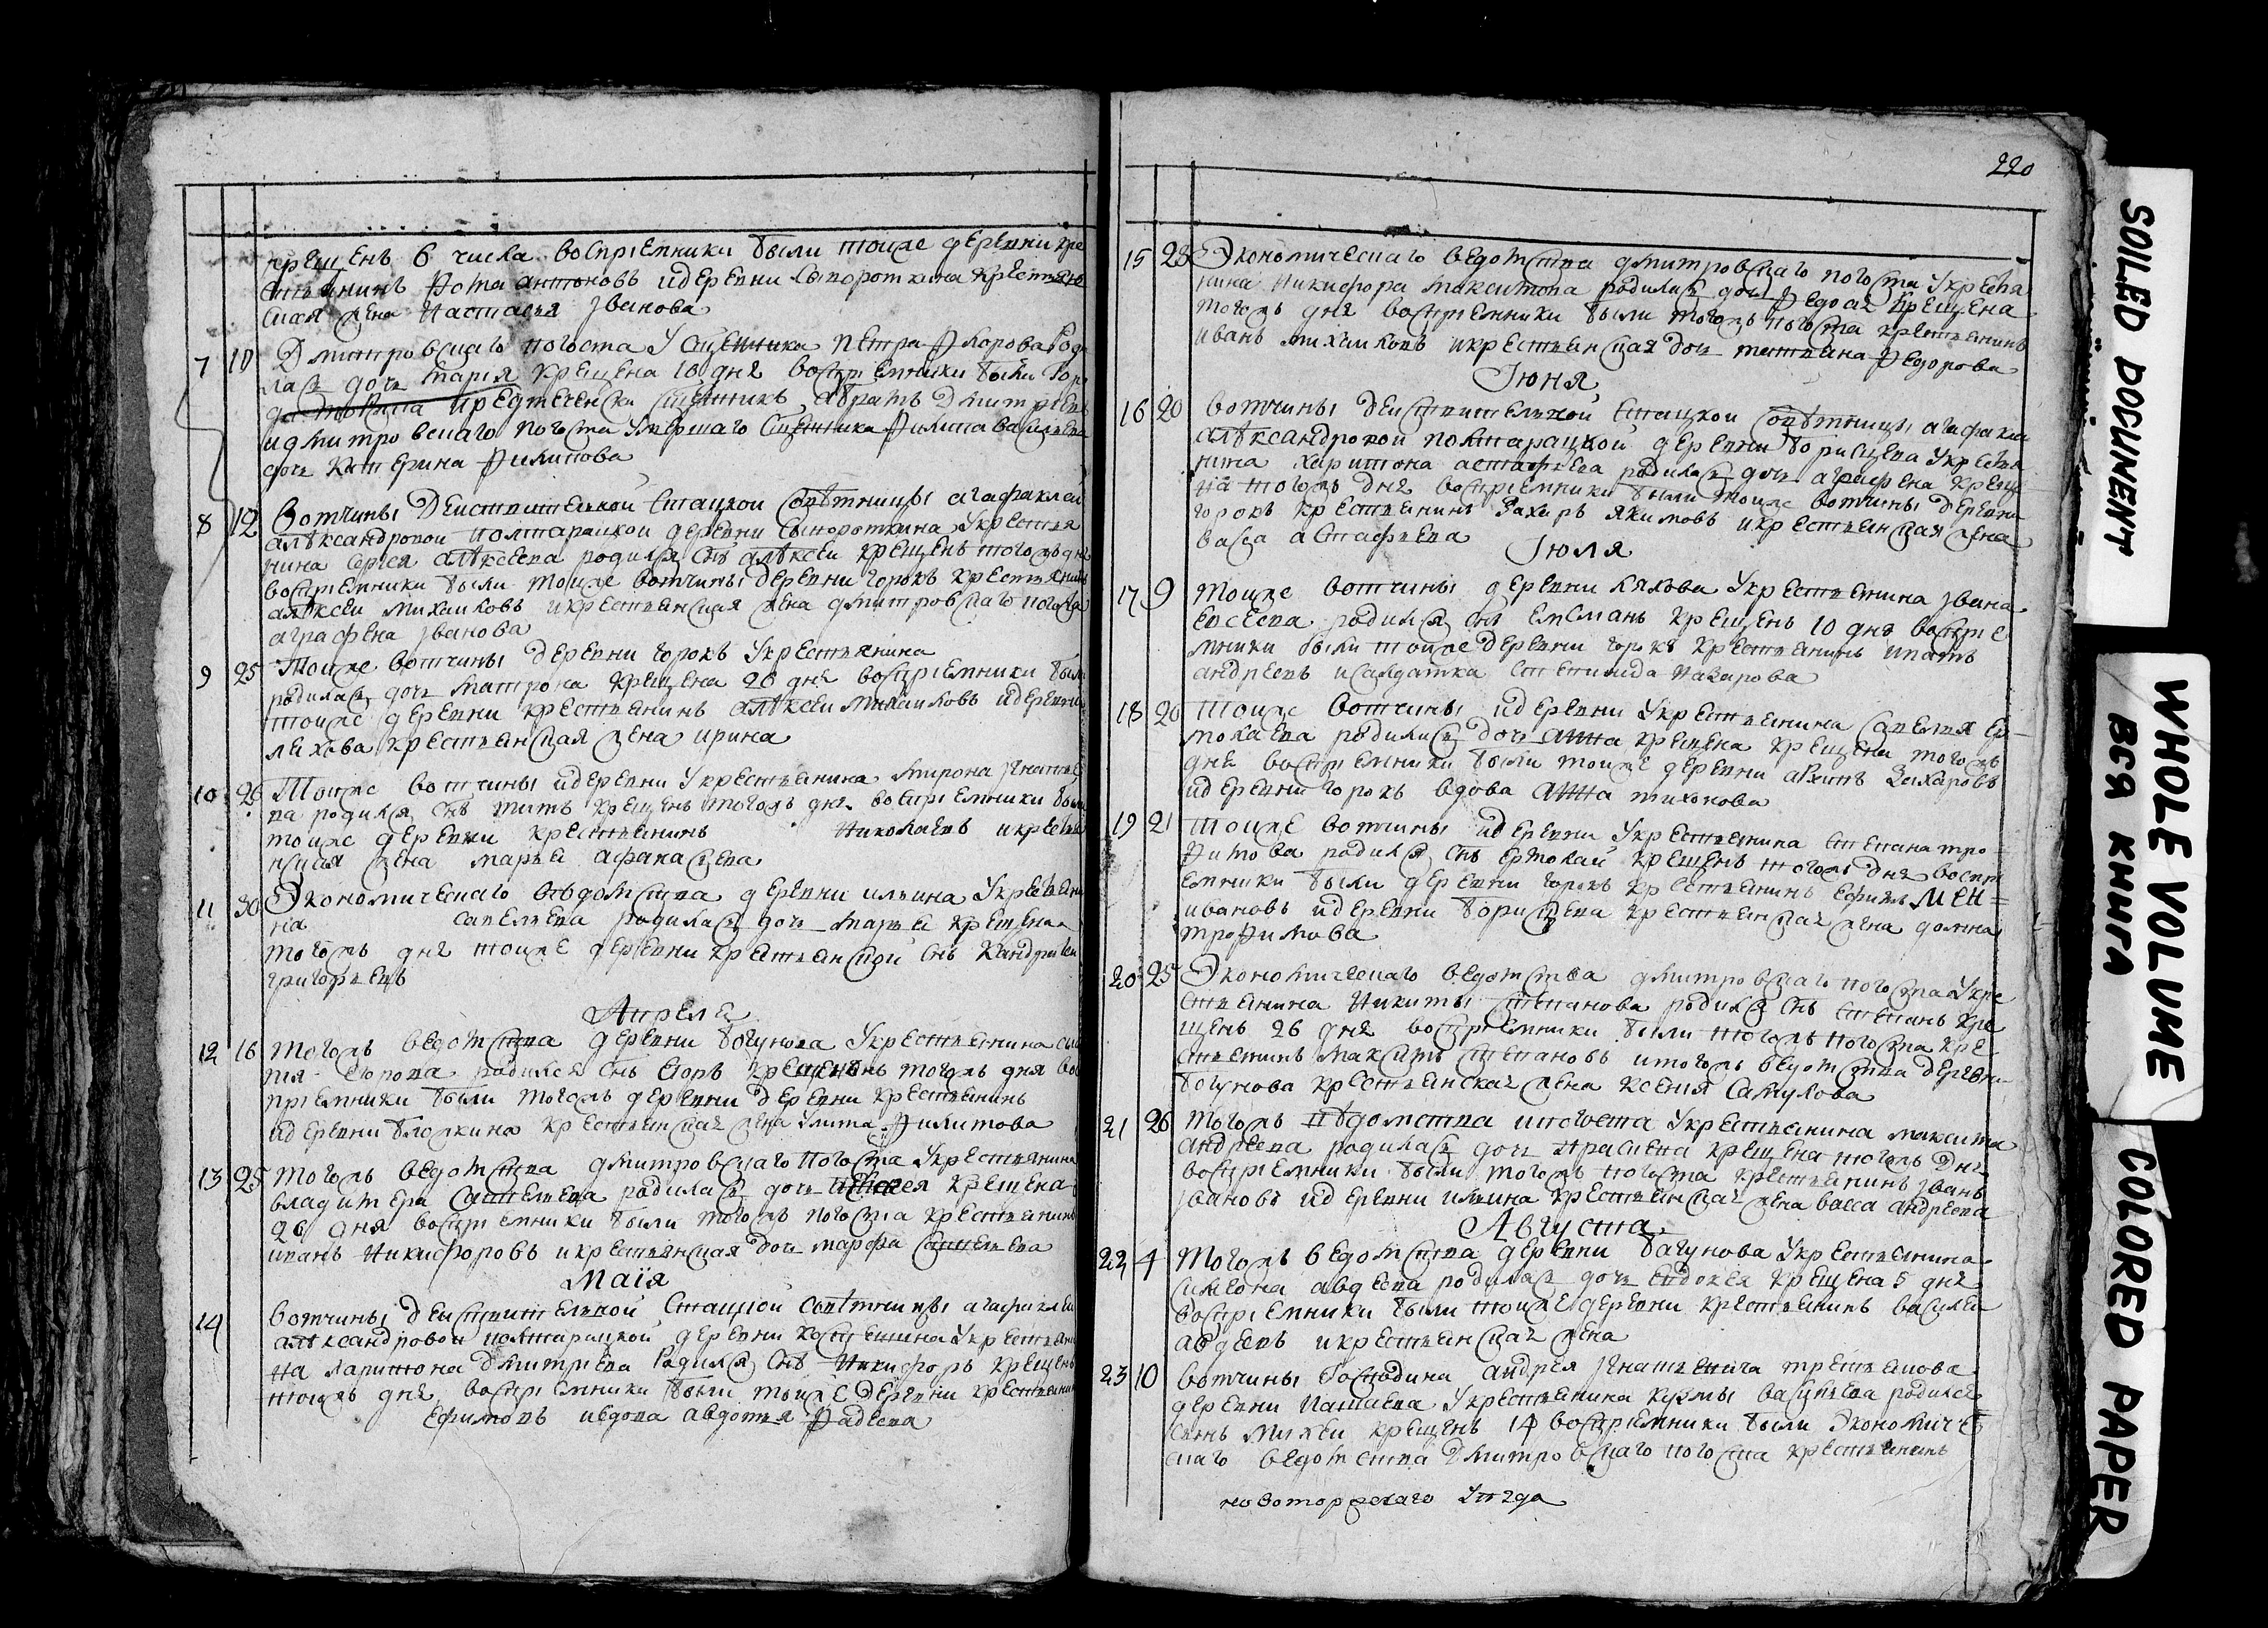 крещенъ 6 числа воспрiемники были тоиже деревни кре
стьянинъ антоновъ идеревни Сывороткина крестьян
ская жена Настасья Iванова
7 10 Дмитровскаго погоста У священника Петра Флорова Роди
лась дочь Марiя крещена 10 дня воспрiемники были
предтеченски священникъ Дмитрiевъ
идмитровскаго погоста Умершаго священника Филипа Васильева
дочь Катерина Филипова
8 12 Вотчины Действительной Статской Советницы агафоклеи
александровои полтарацкой деревни Сывороткина Укрестья
нина Сергея алѣксеева родился снъ алѣксеи крещенъ тогожъ дня
воспрiемники были тоиже вотчины деревни горокъ крестьянинъ
алѣксеи михаиловъ икрестьянская жена дмитровскаго погоста
аграфена Iванова
9 25 Тоиже вотчины деревни горокъ Укрестьянина
родилась дочь Матрона крещена 26 дня воспрiемники были
тоиже деревни крестьянинъ алѣксеи михаиловъ идеревни
ляхова крестьянская жена ирина
10 26 Тоиже вотчины идеревни Укрестьянина мирона Iгнатье
ва родился снъ титъ крещенъ тогожъ дня воспрiемники были
тоиже деревни крестьянинъ Николаевъ икрестья
нская жена марья афанасьева
11 30 Экономическаго вѣдомства деревни ильина Укрестьяни
на савельева родилась дочь марья крещена
тогожъ дня тоиже деревни крестьянской снъ Кандратеи
григорьевъ
Апреля
12 16 тогожъ ведомства деревни богунова Укрестьянина
егорова родился снъ егоръ крещенъ тогожъ дня вос
прiемники были тогожъ деревни деревни крестьянинъ
идеревни блошкина крестьянская жена Улита Филипова
13 25 тогожъ ведомства дмитровскаго погоста Укрестьянина
владимера савельева родилась дочь крещена
26 дня воспрiемники были тогожъ погоста крестьянинъ
иванъ Никифоровъ икрестьянская дочь марфа савельева
Маiя
14 вотчины действительной Статской советницы агафоклеи
алѣксандровои полтарацкой деревни Укрестьяни
на ларитона дмитрiева родился снъ Никифоръ крещенъ
тогожъ дня воспрiемники были тоиже деревни крестьянинъ
ефимовъ ивдова авдотья Фадеева
220
15 23 Экономическаго ведомства дмитровскаго погоста Укрестья
нина Никифора максимова родилась дочь Федосья крещена
тогожъ дня воспрiемники были тогожъ погоста крестьянинъ
иванъ михаиловъ икрестьянская дочь татьяна Федорова
Iюня
16 20 вотчины действительной статской советницы агафоклеи
алѣксандровой полтарацкой деревни борисцева Укрестья
нина харитона астафьева родилась дочь аграфена креще
на тогожъ дня воспрiемники были тоиже вотчины деревни
горокъ крестьянинъ Захаръ якимовъ икрестьянская жена
васа астафьева
Iюля
17 9 тоиже вотчины деревни ляхова Укрестьянина Iвана
евсеева родился снъ емелианъ крещенъ 10 дня воспрiе
мники были тоиже деревни горокъ крестьянинъ игнатъ
андреевъ исалдатка степанида Назарова
18 20 тоиже вотчины идеревни Укрестьянина савелья ер
молаева родилась дочь анна крещена крещена тогожъ
дня воспрiемники были тоиже деревни архипъ Захаровъ
идеревни горокъ вдова анна тихонова
19 21 тоиже вотчины идеревни Укрестьянина степана тро
Фимова родился снъ ермолаи крещенъ тогожъ дня воспрi
емники были деревни горокъ крестьянинъ ефимъ мен=
ивановъ идеревни борисцева крестьянская жена домна
трофимова
20 25 Экономическаго ведомства дмитровскаго погоста Укре
стьянина Никиты степанова родился снъ степанъ кре
щенъ 26 дня воспрiемники были тогожъ погоста кре
стьянинъ максимъ степановъ итогожъ ведомства деревни
богунова крестьянская жена ксения самуилова
21 26 тогожъ вѣдомства ипогоста Укрестьянина максима
андреева родилась дочь парасковья крещена тогожъ дня
воспрiемники были тогожъ погоста крестьянинъ Iванъ
Iвановъ идеревни ильина крестьянская жена васса андреева
Августа
22 4 Тогожъ ведомства деревни багунова Укрестьянина
симеона авдеева родилась дочь евдокея крещена 5 дня
воспрiемники были тоиже деревни крестьянинъ василеи
авдеевъ икрестьянская жена
23 10 вотчины Господина андрея Iгнатьевича третьякова
деревни Укрестьянина кузмы васильева родился
сынъ крещенъ 14 воспрiемники были Экономиче
скаго ведомства Дмитровскаго погоста крестьянинъ
новоторжскаго Уезда
SOILED DOCUMENT
WHOLE VOLUME
ВСЯ КНИГА
COLORED PAPER